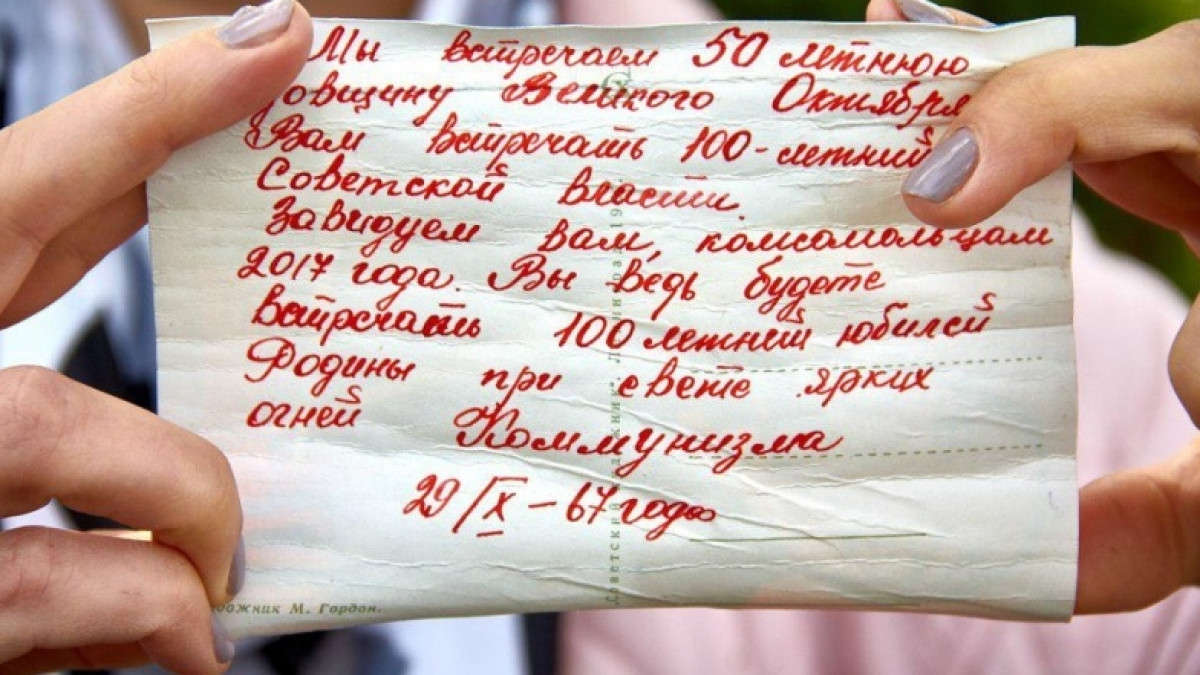 Мы встречаем 50 летнюю
довщину Великого Октября
Вам встречать 100-летний
Советской власти.
Завидуем вам, комсомольцам
2017 года. Вы ведь будете
встречать 100 летний юбилей
Родины при свете ярких
огней Коммунизма
29/IX-67 года
ожник М. Гордон.